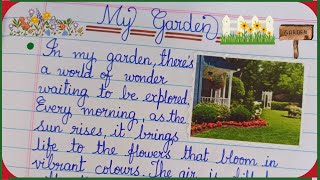 My Garden
GARDEN
In my garden, there's
a world of wonder
waiting to be explored.
Every morning, as the
sun rises, it brings
life to the flowers that bloom in
vibrant colours. The air is filled